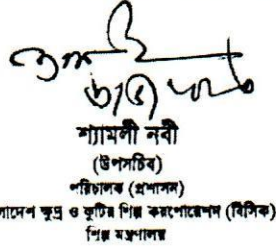 শ্যামলী নবী
(উপসচিব)
পরিচালক (প্রশাসন)
লাদেশ ক্ষুদ্র ও কুটির শিল্প করপোরেশন (বিসিক)
শিল্প মন্ত্রণালয়